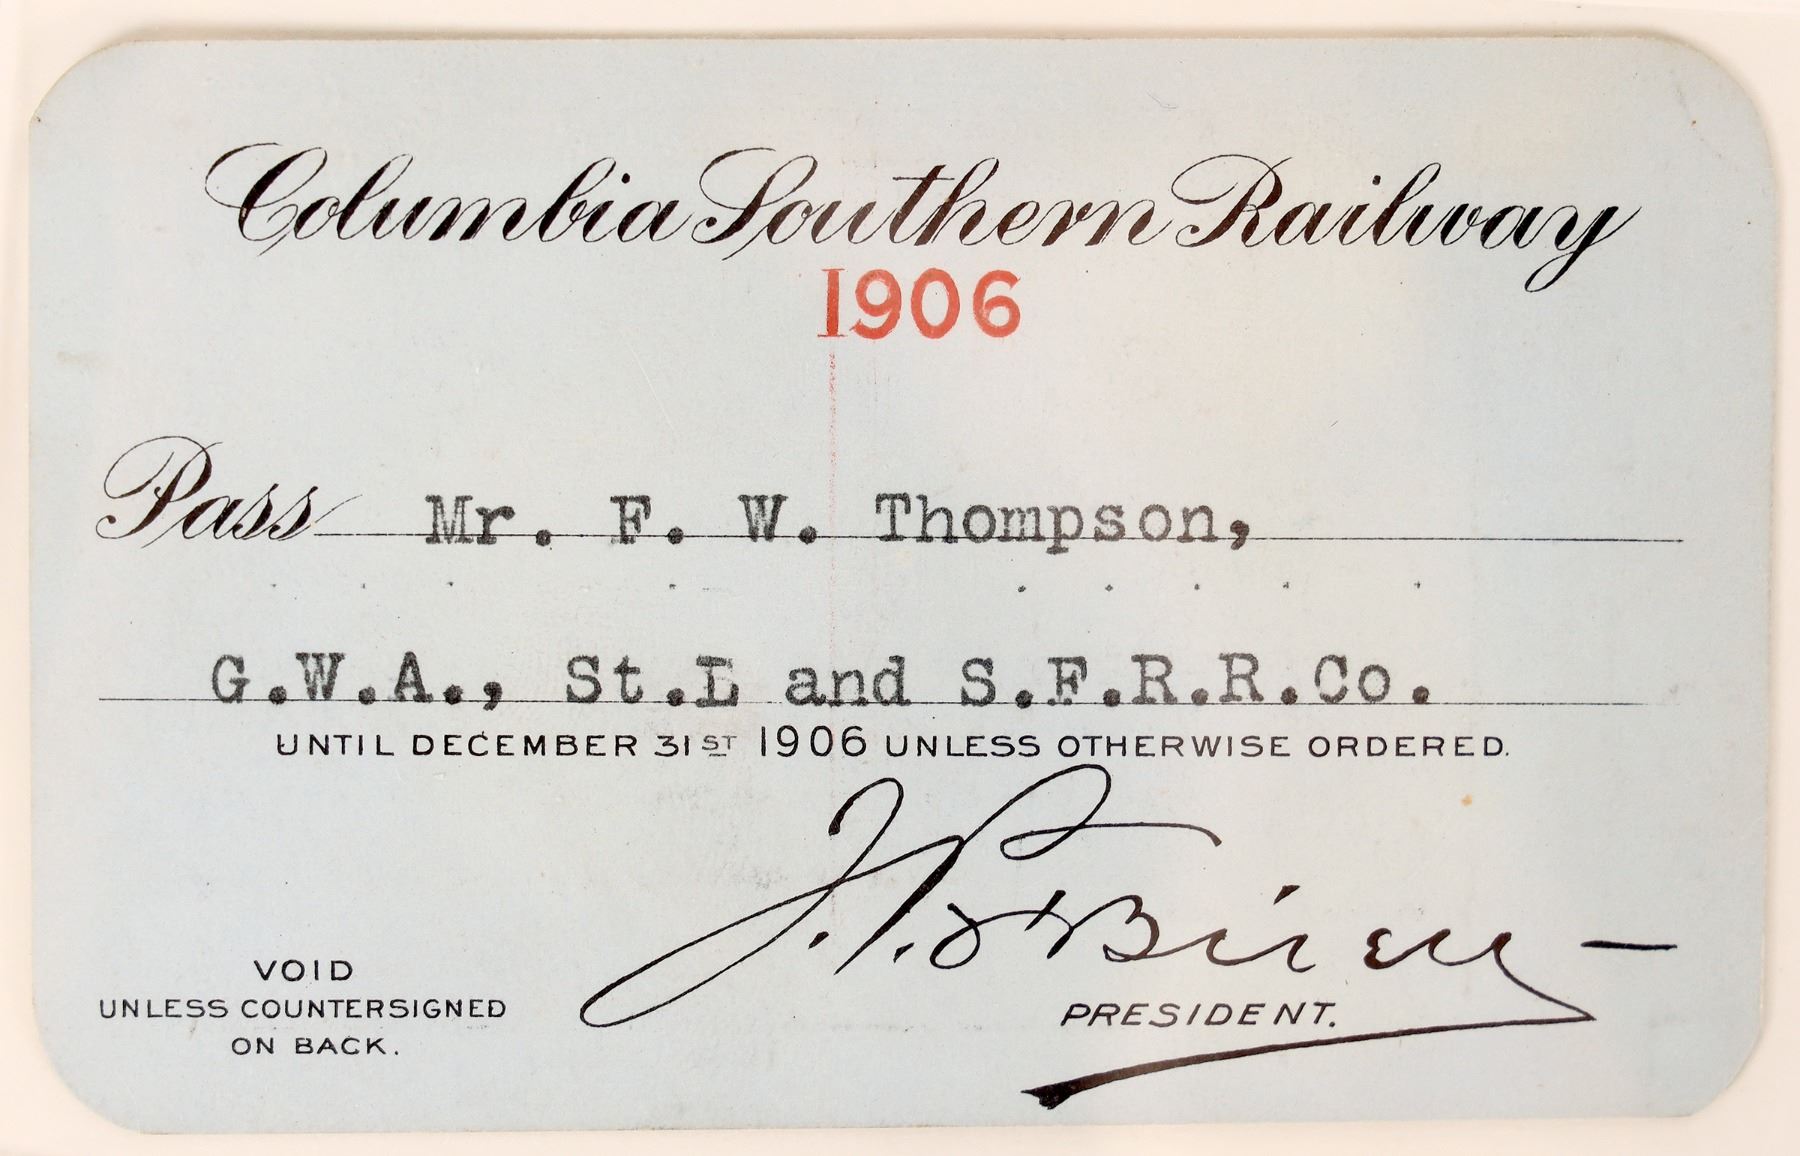 Columbia Southern Railway
1906
Pass Mr. F. W. Thompson,
G.W.A., St.L and S.F.R.R.Co.
UNTIL DECEMBER 31ST 1906 UNLESS OTHERWISE ORDERED.
J. P. O'Brien
PRESIDENT.
VOID
UNLESS COUNTERSIGNED
ON BACK.